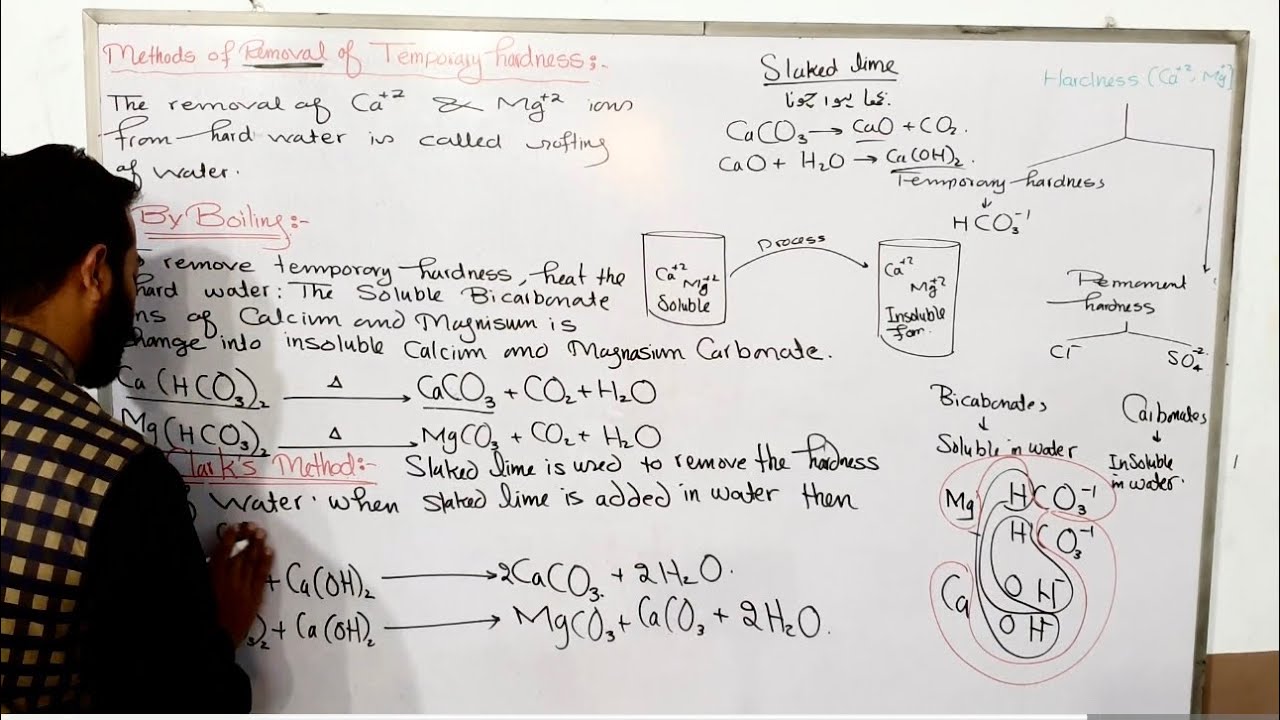 Methods of Removal of Temporary hardness:-
The removal of Ca⁺² & Mg⁺² ions
from hard water is called softing
of water.
By Boiling:-
remove temporary hardness, heat the
hard water: The Soluble Bicarbonate
ns of Calcium and Magnisum is
hange into insoluble Calcium and Magnasium Carbonate.
Ca(HCO₃)₂ —Δ→ CaCO₃ + CO₂ + H₂O
Mg(HCO₃)₂ —Δ→ MgCO₃ + CO₂ + H₂O
Clark's Method:- Slaked lime is used to remove the hardness
Water. when slaked lime is added in water then
+ Ca(OH)₂ → 2CaCO₃ + 2H₂O.
)₂ + Ca(OH)₂ → MgCO₃ + CaCO₃ + 2H₂O.
Slaked lime
CaCO₃ → CaO + CO₂.
CaO + H₂O → Ca(OH)₂.
Ca⁺²
Mg⁺²
Soluble
Process
Ca⁺²
Mg⁺²
Insoluble
form.
Hardness (Ca⁺², Mg⁺²]
Temporary hardness
↓
HCO₃⁻¹
Permanent
hardness
Cl⁻
SO₄⁻²
Bicabonates
↓
Soluble in water
Carbonates
↓
InSoluble
in water.
Mg HCO₃⁻¹
HCO₃⁻¹
Ca OH⁻
OH⁻